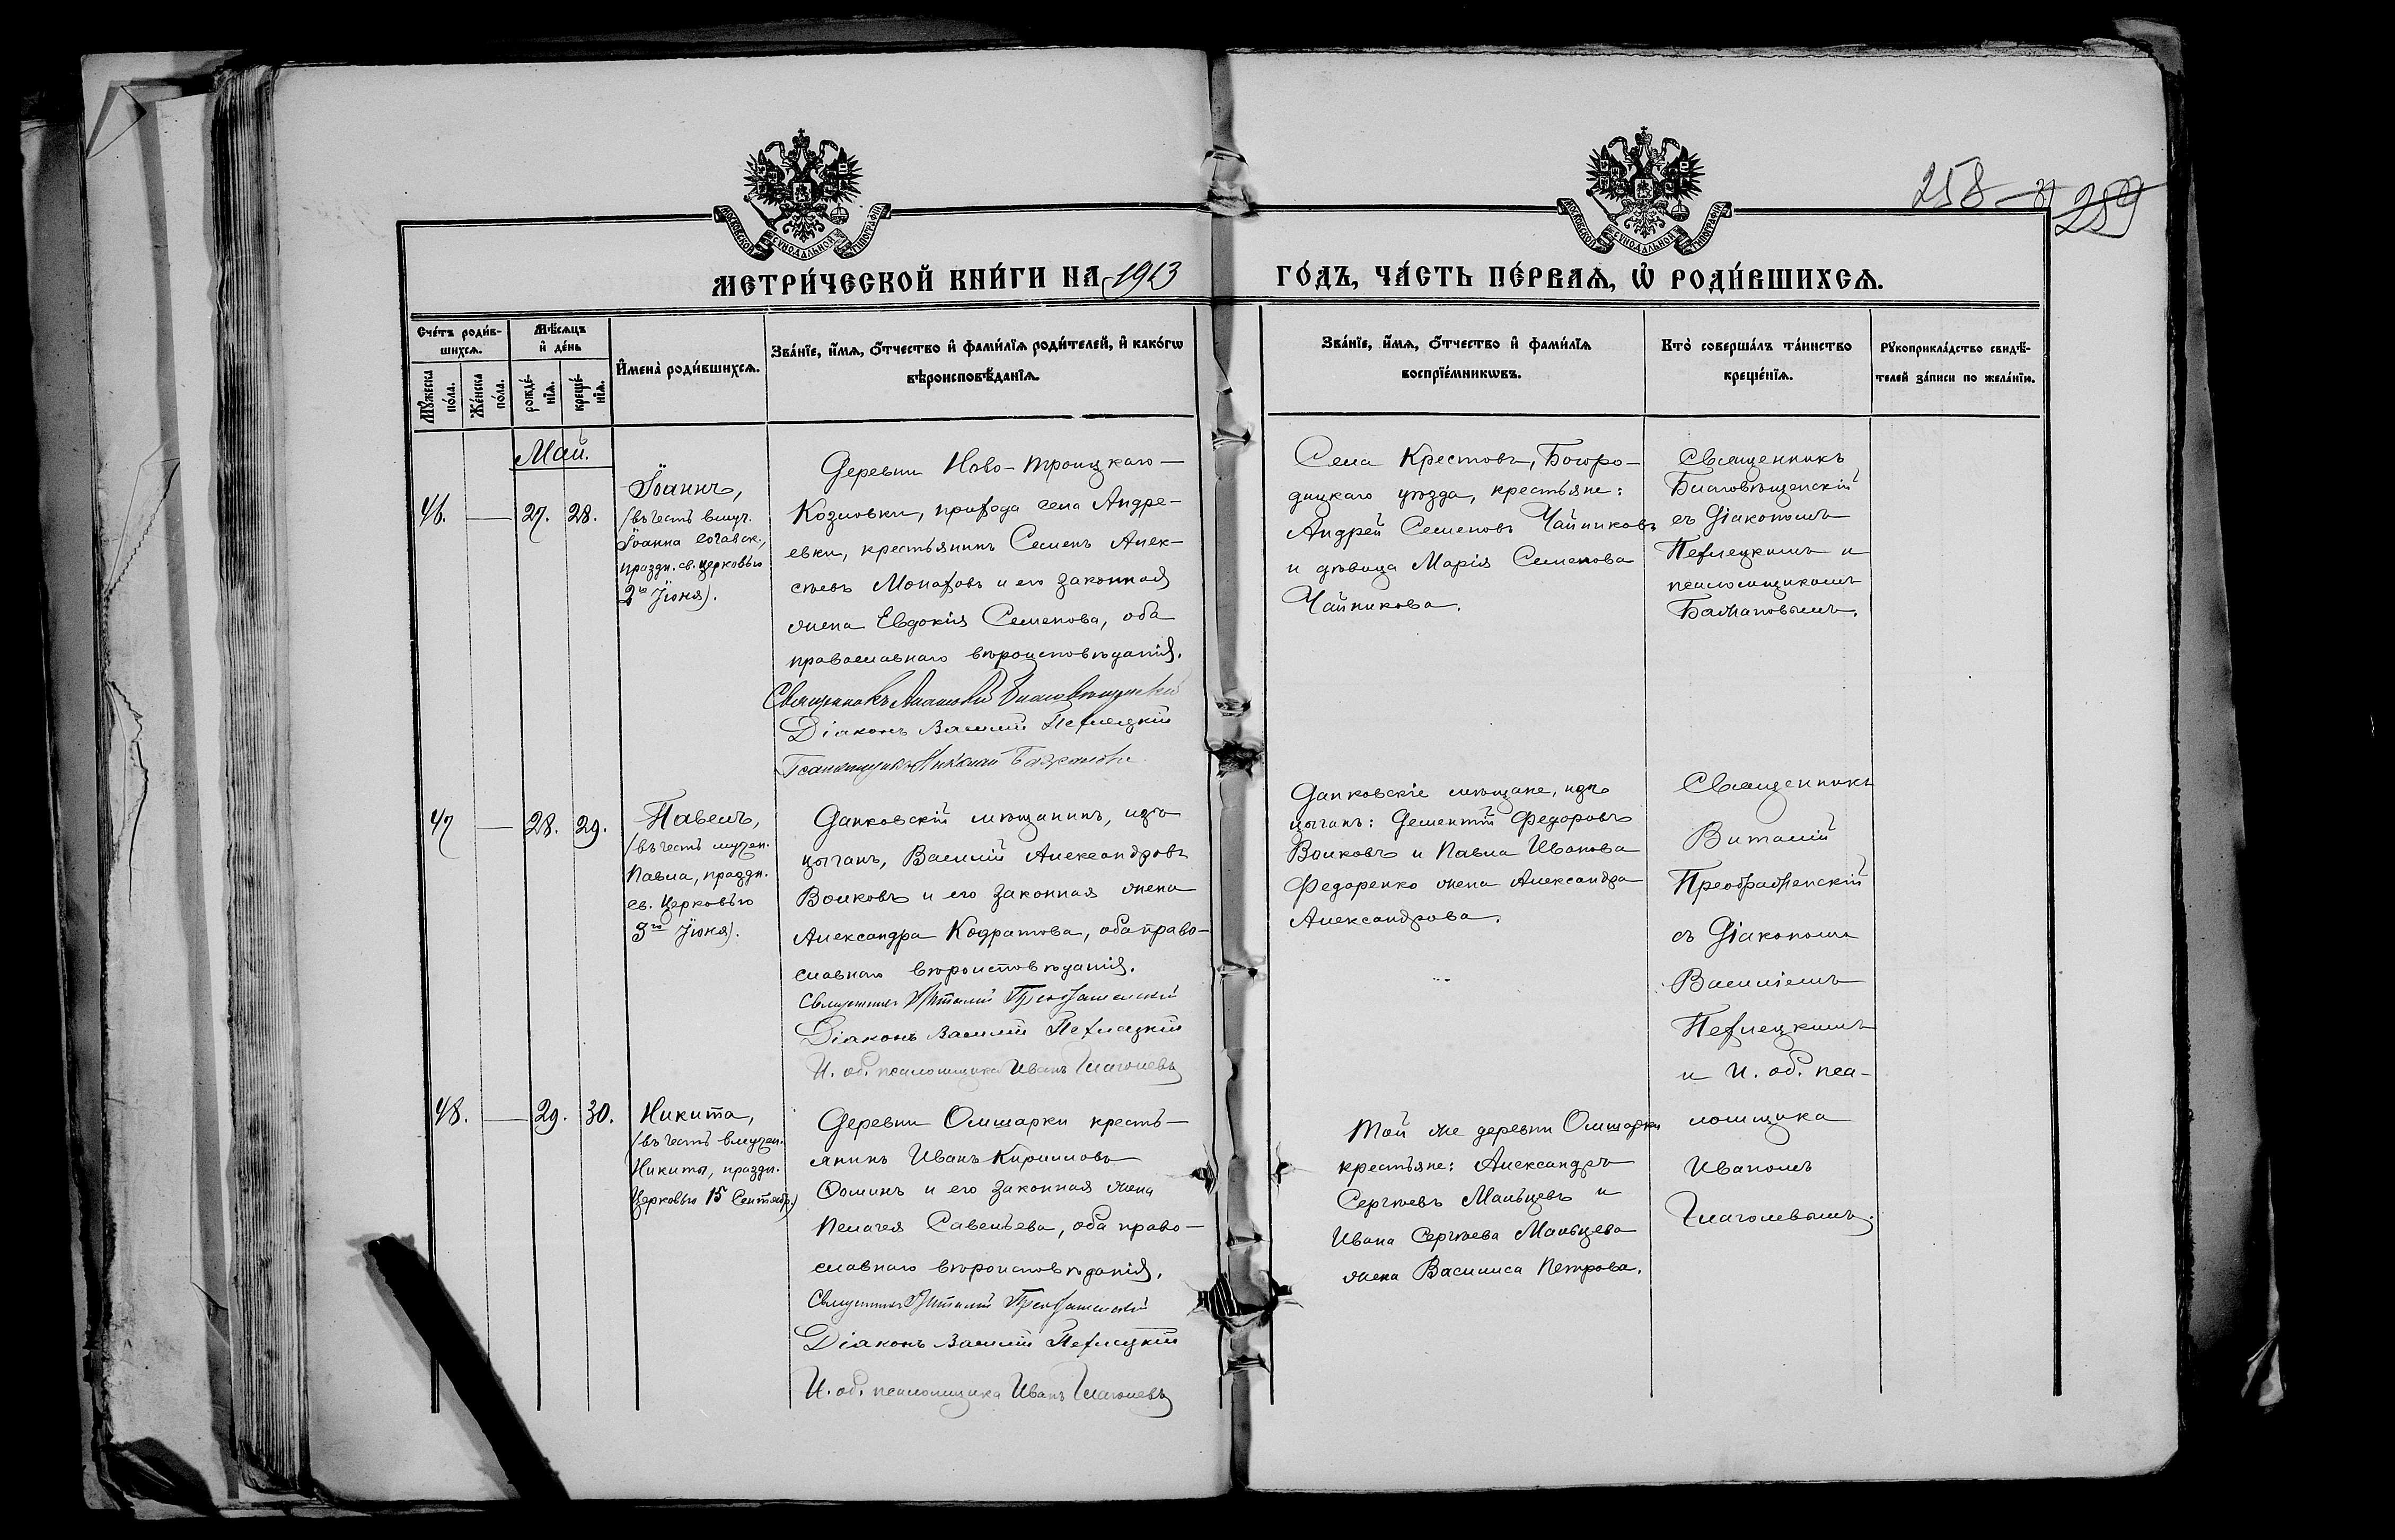 258
259
МОСКОВСКОЙ СѴНОДАЛЬНОЙ ТИПОГРАФІИ
МОСКОВСКОЙ СѴНОДАЛЬНОЙ ТИПОГРАФІИ
МЕТРИ́ЧЕСКОЙ КНИ́ГИ НА 1913
ГО́ДЪ, ЧА́СТЬ ПЕ́РВАѦ, Ѡ҆ РОДИ́ВШИХСѦ.
Сче́тъ роди́в-
шихсѧ.
Мѣ́сѧцъ
и҆ де́нь
И҆мена̀ роди́вшихсѧ.
Зва́нїе, и҆́мѧ, ѻ҆́тчество и҆ фами́лїѧ роди́телей, и҆ како́гѡ
вѣроисповѣ́данїѧ.
Мꙋ́жеска
по́ла.
Же́нска
по́ла.
рожде́-
нїѧ.
креще́-
нїѧ.
Зва́нїе, и҆́мѧ, ѻ҆́тчество и҆ фами́лїѧ
воспрїе́мникѡвъ.
Кто̀ соверша́лъ та́инство
креще́нїѧ.
Рꙋкоприкла́дство свидѣ́-
телей за́писи по жела́нїю.
Май.
46. — 27. 28.
Іоаннъ,
(въ честь вмуч.
Іоанна Сочавск.,
праздн. св. церковью
2го Іюня).
Деревни Ново-Троицкаго-
Козловки, прихода села Андре-
евки, крестьянинъ Семенъ Алек-
сѣевъ Монаховъ и его законная
жена Евдокія Семенова, оба
православнаго вѣроисповѣданія.
Священникъ Благовѣщенскій
Діаконъ Василій Пехлецкій
Псаломщикъ Николай Бажановъ
Села Крестовъ, Богоро-
дицкаго уѣзда, крестьяне:
Андрей Семеновъ Чайниковъ
и дѣвица Марія Семенова
Чайникова.
Священникъ
Благовѣщенскій
съ Діакономъ
Пехлецкимъ и
псаломщикомъ
Бажановымъ.
47 — 28. 29.
Павелъ,
(въ честь мучен.
Павла, праздн.
св. Церковью
3го Іюня).
Данковскій мѣщанинъ, изъ
цыганъ, Василій Александровъ
Волковъ и его законная жена
Александра Кодратова, оба право-
славнаго вѣроисповѣданія.
Священникъ Виталій Преображенскій
Діаконъ Василій Пехлецкій
И. об. псаломщика Иванъ Глаголевъ
Данковскіе мѣщане, изъ
цыганъ: Дементій Федоровъ
Волковъ и Павла Иванова
Федоренко жена Александра
Александрова.
Священникъ
Виталій
Преображенскій
съ Діакономъ
Василіемъ
Пехлецкимъ
и И. об. пса-
ломщика
Иваномъ
Глаголевымъ.
48. — 29. 30.
Никита,
(въ честь вмучен.
Никиты, праздн.
Церковью 15 Сентябр.)
Деревни Ольшарки кресть-
янинъ Иванъ Кирилловъ
Ѳоминъ и его законная жена
Пелагея Савельева, оба право-
славнаго вѣроисповѣданія.
Священникъ Виталій Преображенскій
Діаконъ Василій Пехлецкій
И. об. псаломщика Иванъ Глаголевъ
Той же деревни Ольшарки
крестьяне: Александръ
Сергѣевъ Мальцевъ и
Ивана Сергѣева Мальцева
жена Василиса Петрова.